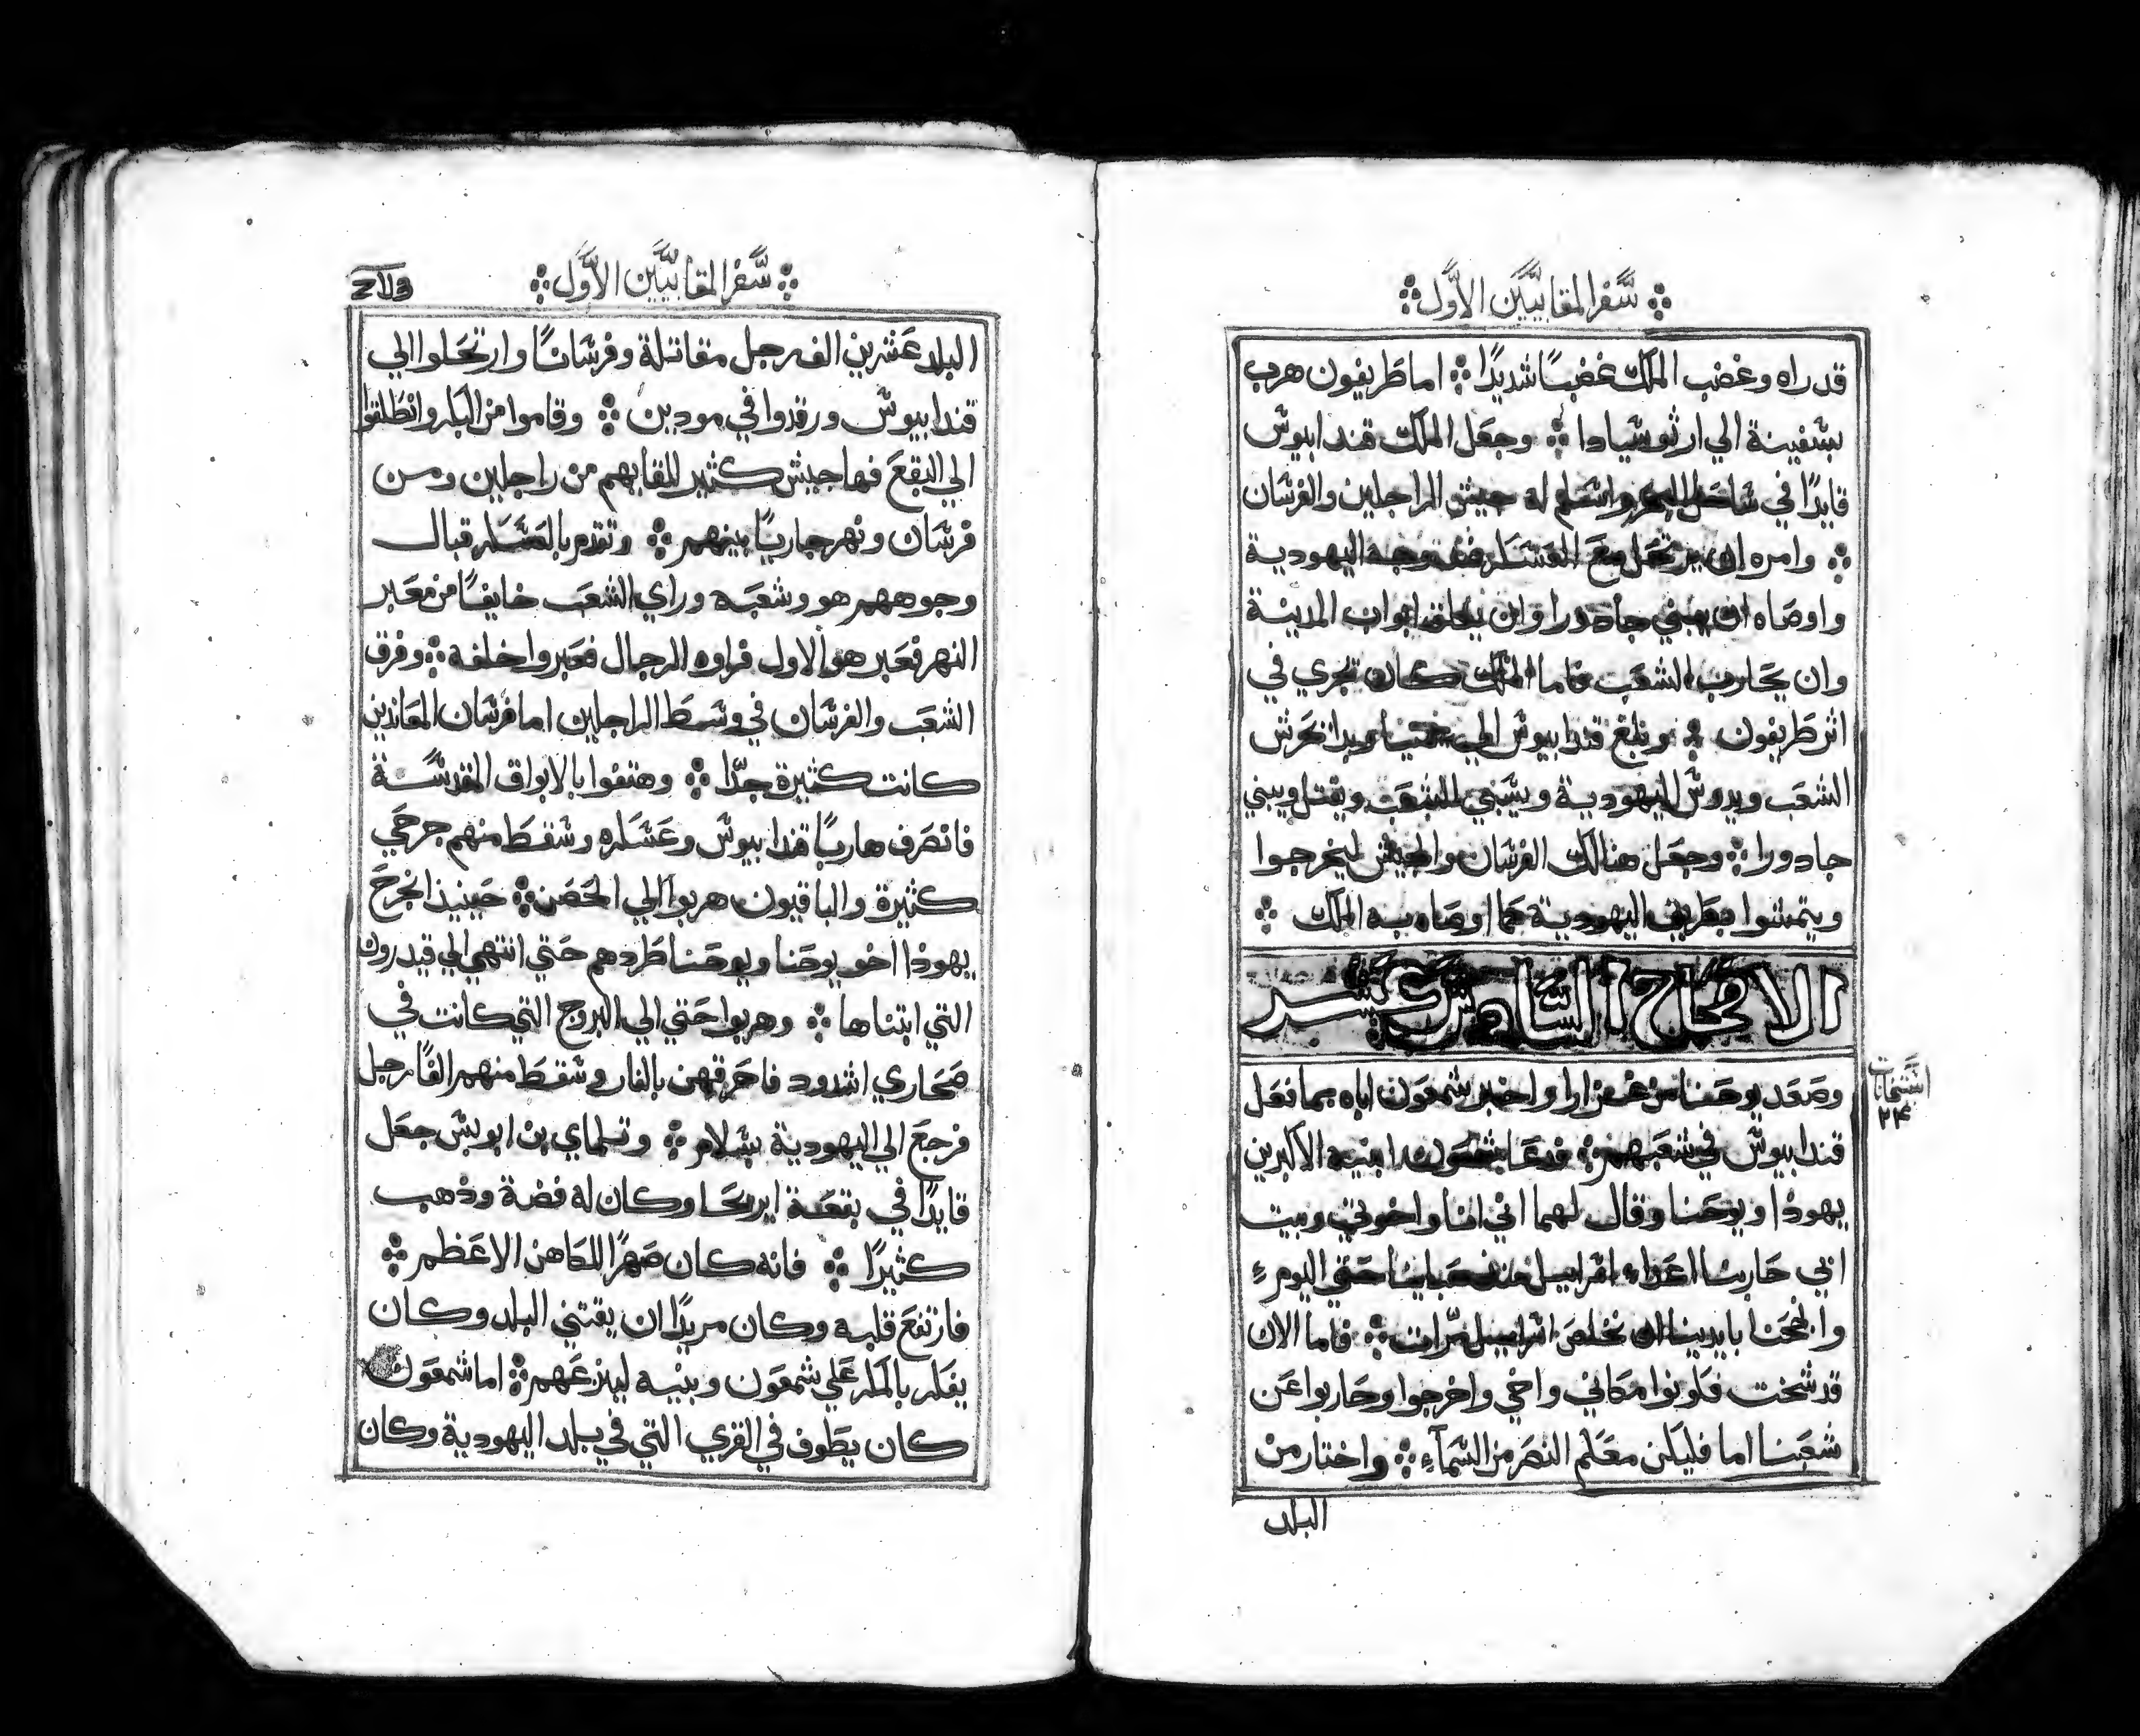 سَّفر المقابيَّين الأوَّل
قد راه وغضب الملك غضبًا شديدًا ۞ اما طريفون هرب
بسفينة الي ارثوسيادا ۞ وجعل الملك قندابيوس
قايدًا في ساحل البحر واسلم له جيش الراجلين والفرسان
۞ وامره ان يرتحل مع العسكر ضد وجه اليهودية
واوصاه ان يبني جادورا وان يغلق ابواب المدينة
وان يحارب الشعب فاما الملك كان يجري في
اثر طريفون ۞ وبلغ قندابيوس الي يمنيا وبدا يحرش
الشعب ويدوس اليهودية ويسبي الشعب ويقتل ويبني
جادورا ۞ وجعل هنالك الفرسان والجيش ليخرجوا
ويتمشوا بطريق اليهودية كما اوصاه به الملك ۞
الاصحاح السادس عشر
وصعد يوحنا من غزارا واخبر شمعون اباه بما فعل
قندابيوس في شعبهم ۞ فدعا شمعون ابنيه الاكبرين
يهوذا ويوحنا وقال لهما اني انا واخوتي وبيت
ابي حاربنا اعداء اسراييل منذ صباينا حتي اليوم
وانجحنا بايدينا ان نخلص اسراييل مرّات ۞ فاما الان
قد شخت فكونوا مكاني واخي واخرجوا وحاربوا عن
شعبنا اما فليكن معكم النصر من السمآء ۞ واختار من
البلد
٢٤
سَّفر المقابيَّين الأوَّل
البلد عشرين الف رجل مقاتلة وفرسانًا وارتحلوا الي
قندابيوس ورقدوا في مودين ۞ وقاموا من الباكر وانطلقوا
الي البقع فها جيش كثير للقايهم من راجلين ومن
فرسان ونهر جاريًا بينهم ۞ وتقدم بالعسكر قبال
وجوههم هو وشعبه وراي الشعب خايفًا من معبر
النهر فعبر هو الاول فراوه الرجال فعبروا خلفه ۞ وفرق
الشعب والفرسان في وسط الراجلين اما فرسان المعاندين
كانت كثيرة جدًّا ۞ وهتفوا بالابواق المقدسة
فانصرف هاربًا قندابيوس وعسكره وسقط منهم جرحي
كثيرة والباقيون هربوا الي الحصن ۞ حينيذ انجرح
يهوذا اخو يوحنا ويوحنا طردهم حتي انتهي الي قيدرون
التي ابتناها ۞ وهربوا حتي الي البروج التي كانت في
صحاري اشدود فاحرقهن بالنار وسقط منهم الفًا رجل
فرجع الي اليهودية بسلام ۞ وتلماي بن ابوبس جعل
قايدًا في بقعة ايريحا وكان له فضة وذهب
كثيرًا ۞ فانه كان صهرًا للكاهن الاعظم ۞
فارتفع قلبه وكان مريدًا ان يقتني البلد وكان
يفكر بالمكر علي شمعون وبنيه لينزعهم ۞ اما شمعون
كان يطوف في القري التي في بلد اليهودية وكان